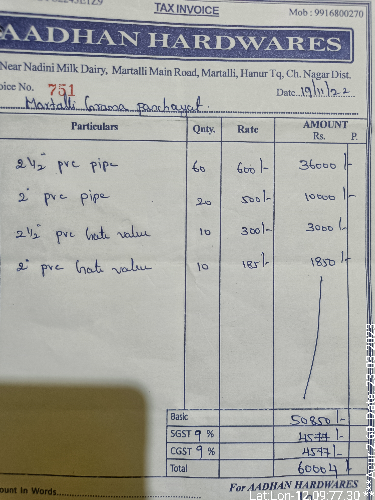 TAX INVOICE
Mob : 9916800270
AADHAN HARDWARES
Near Nadini Milk Dairy, Martalli Main Road, Martalli, Hanur Tq, Ch. Nagar Dist.
oice No. 751 Date 19/11/22
Martalli Grama panchayat
Particulars Qnty. Rate AMOUNT
Rs. P.
2 1/2" pvc pipe 60 600/- 36000/-
2" pvc pipe 20 500/- 10000/-
2 1/2" pvc Gate value 10 300/- 3000/-
2" pvc Gate value 10 185/- 1850/-
Basic 50850/-
SGST 9 % 4577/-
CGST 9 % 4577/-
Total 60004/-
ount In Words For AADHAN HARDWARES
Lat,Lon- 12.09;77.30